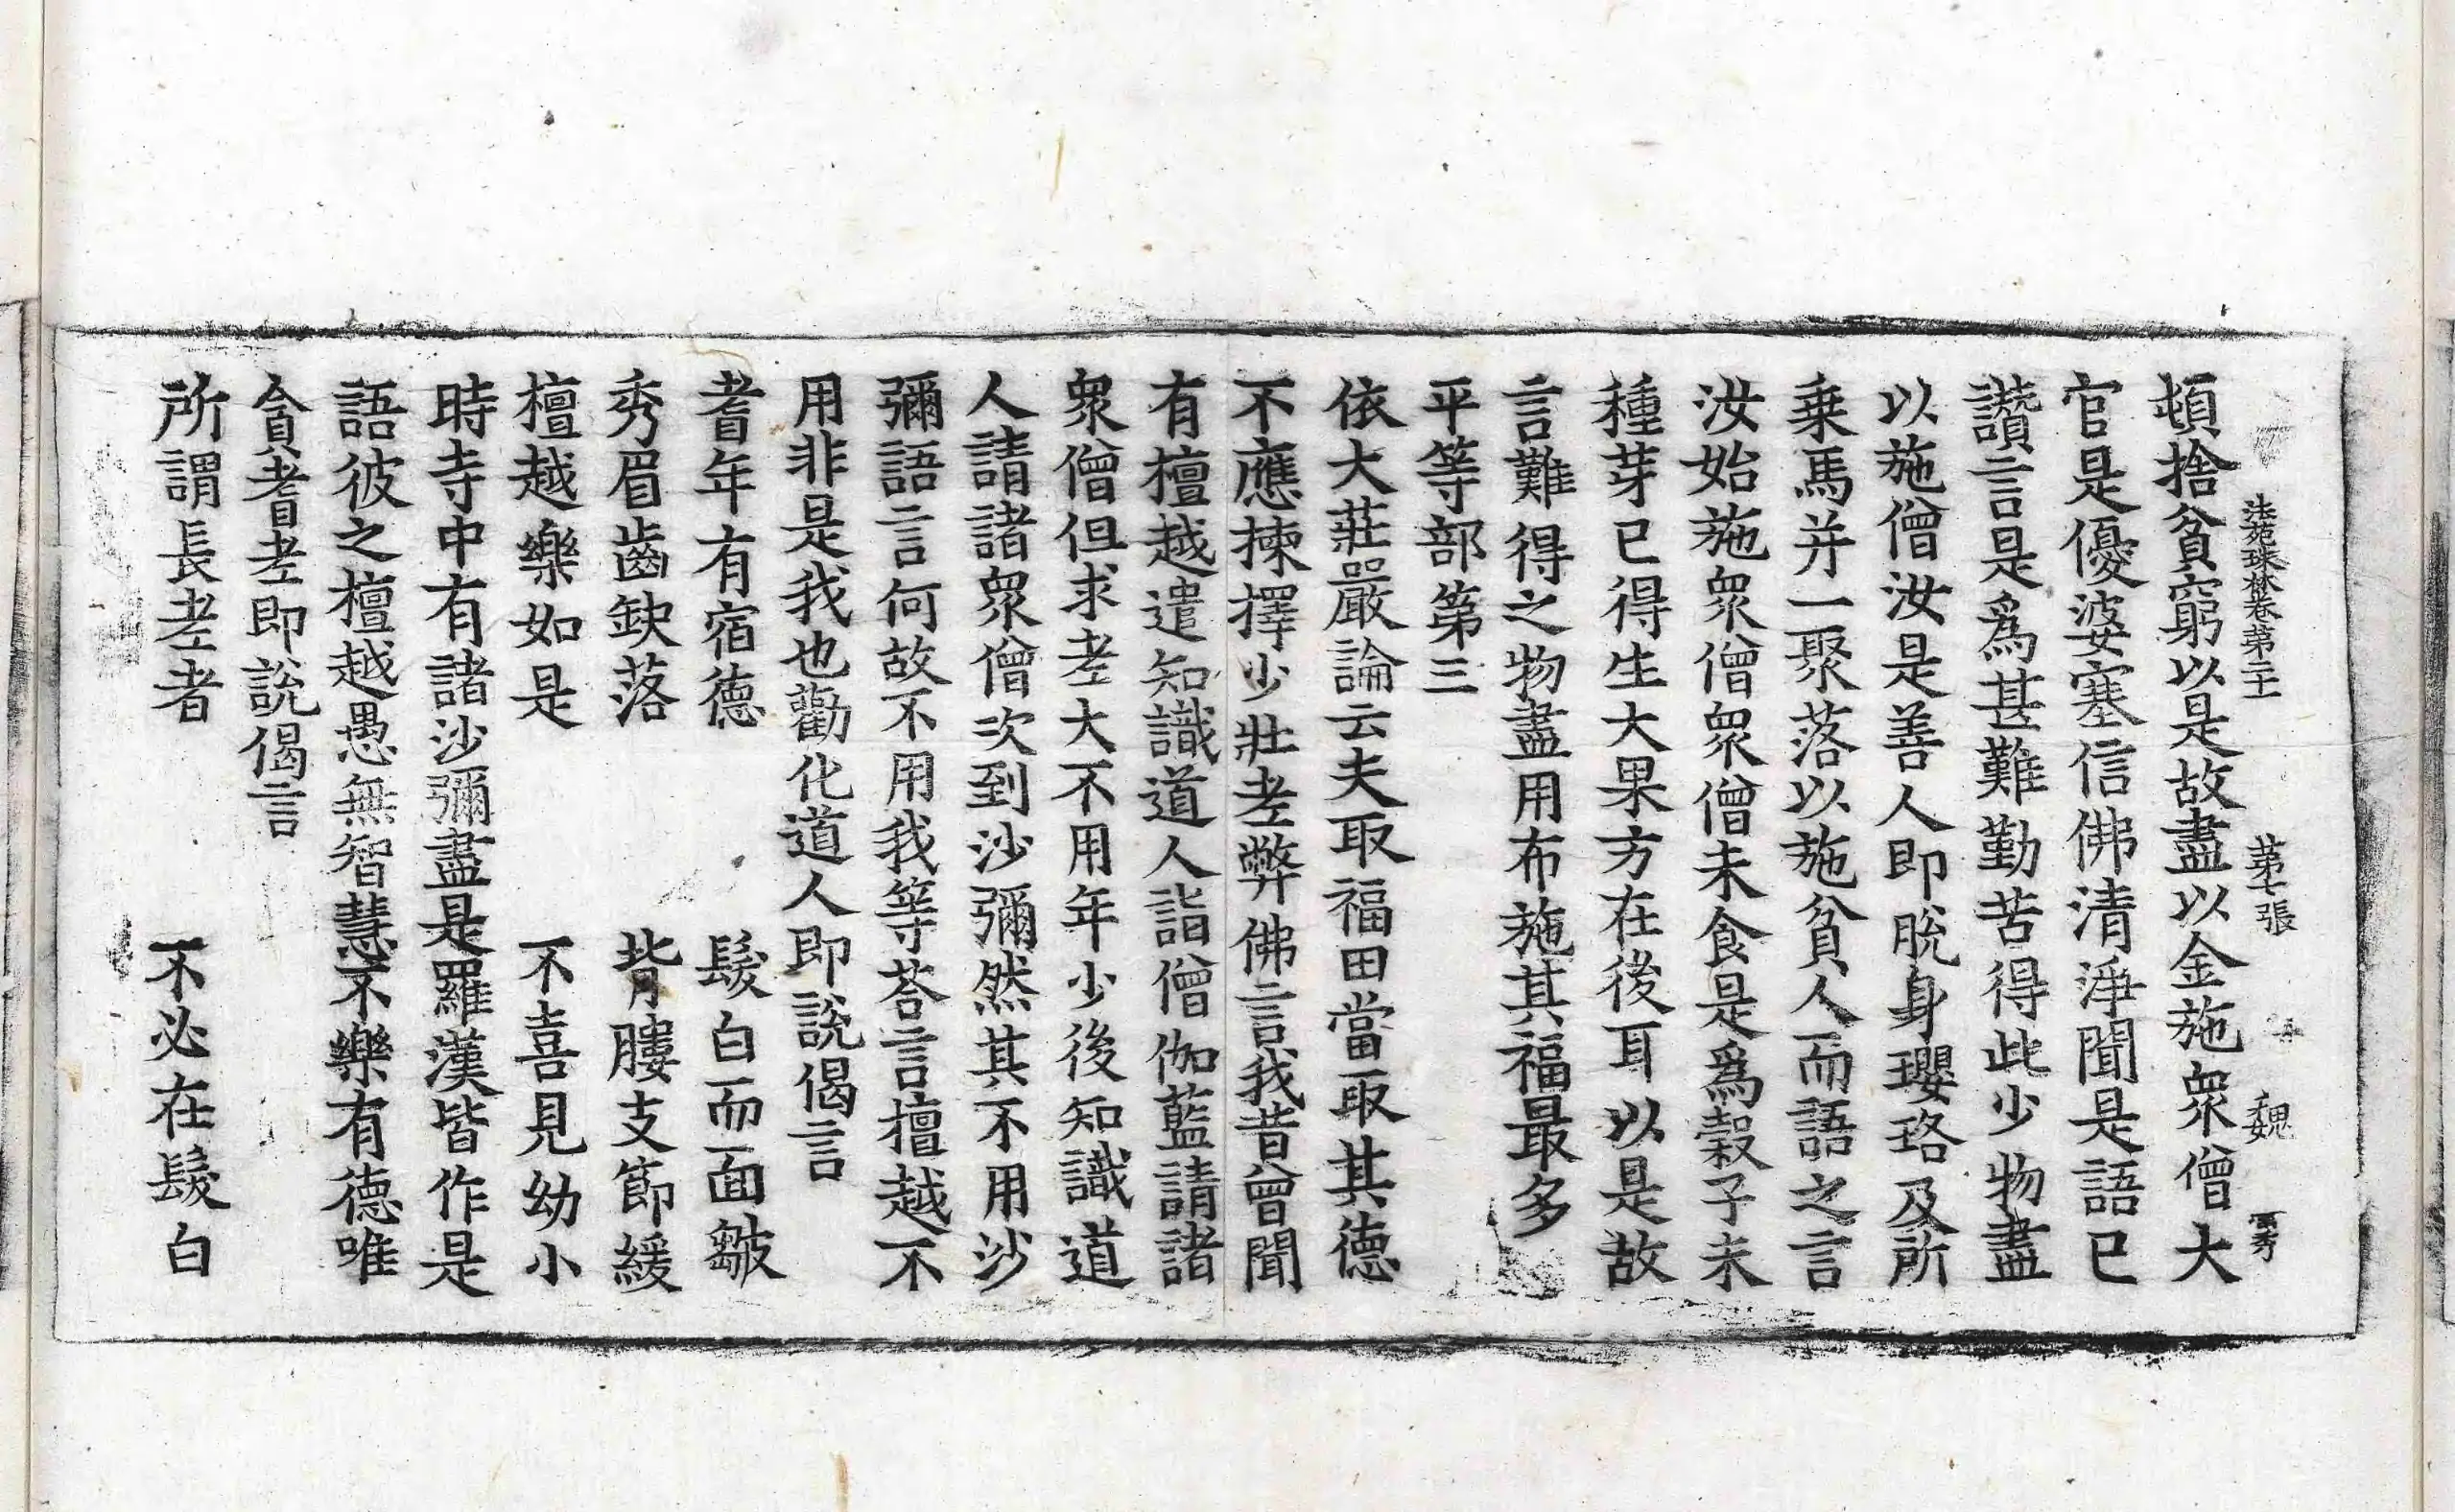 法苑珠林卷第二十一 第七張 魏 雲秀
頓捨貧窮以是故盡以金施衆僧大
官是優婆塞信佛清淨聞是語已
讚言是爲甚難勤苦得此少物盡
以施僧汝是善人即脫身瓔珞及所
乗馬并一聚落以施貧人而語之言
汝始施衆僧衆僧未食是爲穀子未
種芽已得生大果方在後耳以是故
言難得之物盡用布施其福最多
平等部第三
依大莊嚴論云夫取福田當取其德
不應揀擇少壯耂弊佛言我昔曾聞
有檀越遣知識道人詣僧伽藍請諸
衆僧但求耂大不用年少後知識道
人請諸衆僧次到沙彌然其不用沙
彌語言何故不用我等荅言檀越不
用非是我也勸化道人即說偈言
耆年有宿德 髮白而面皺
秀眉齒缺落 背膢支節緩
檀越樂如是 不喜見幼小
時寺中有諸沙彌盡是羅漢皆作是
語彼之檀越愚無智慧不樂有德唯
貪耆耂即說偈言
所謂長耂者 不必在髮白